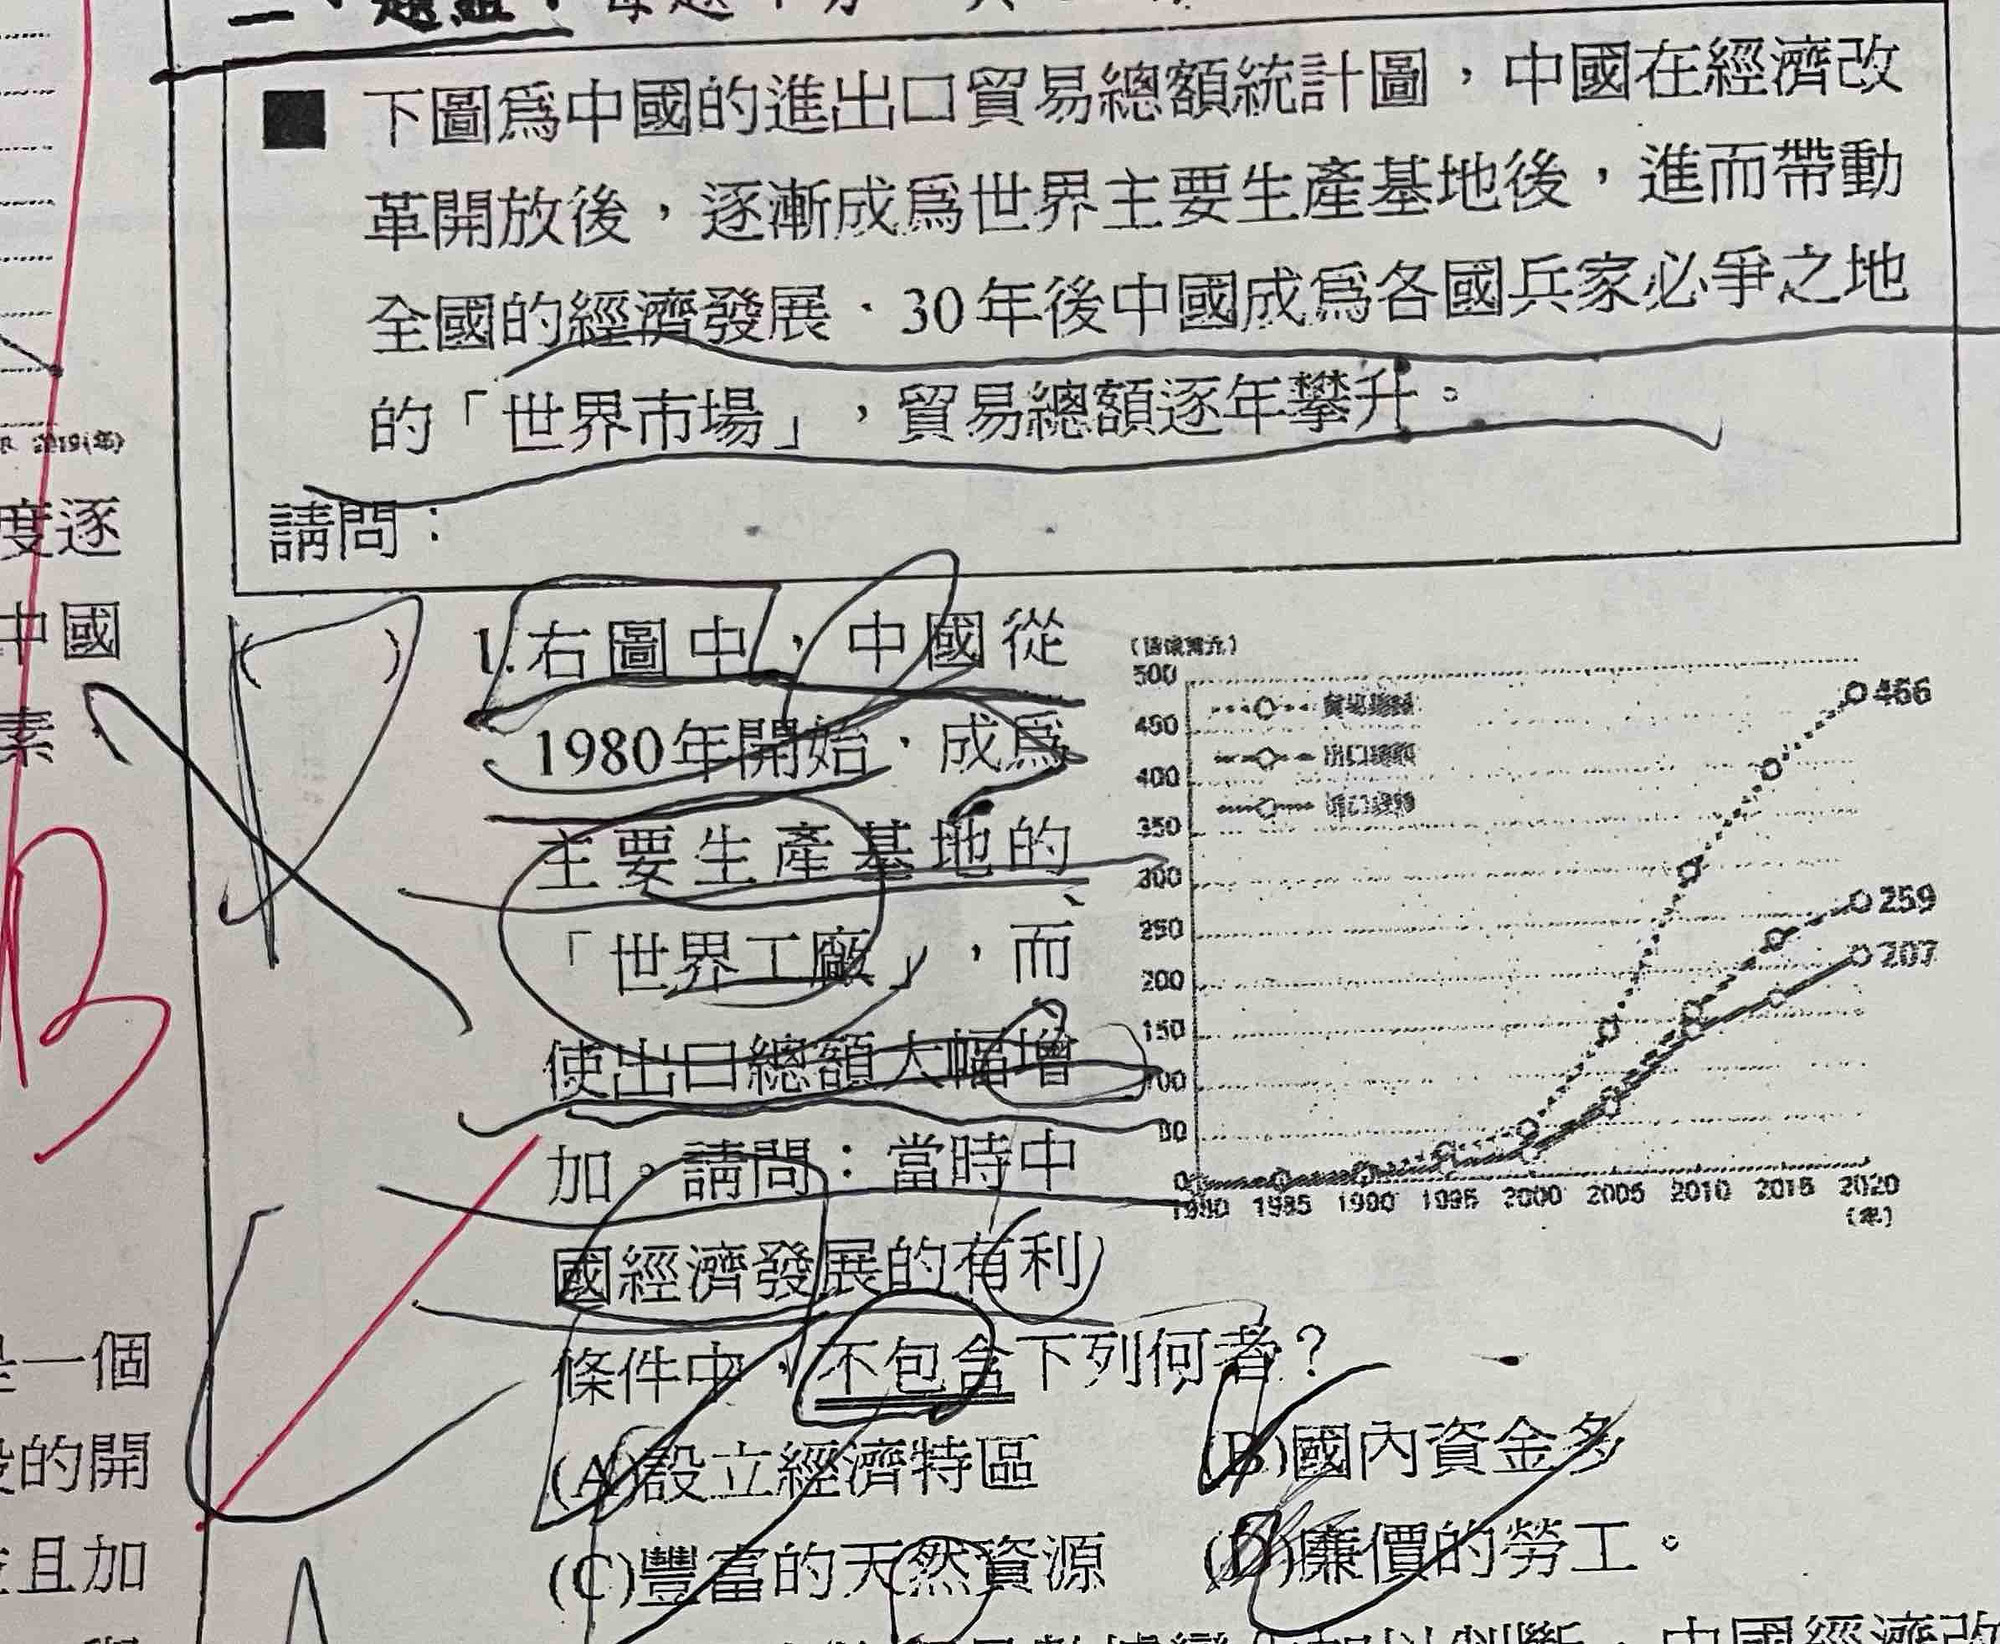 下圖為中國的進出口貿易總額統計圖，中國在經濟改
革開放後，逐漸成為世界主要生產基地後，進而帶動
全國的經濟發展，30年後中國成為各國兵家必爭之地
的「世界市場」，貿易總額逐年攀升。
請問：
( ) 1.右圖中，中國從
1980年開始，成為
主要生產基地的
「世界工廠」，而
使出口總額大幅增
加。請問：當時中
國經濟發展的有利
條件中，不包含下列何者？
(A)設立經濟特區 (B)國內資金多
(C)豐富的天然資源 (D)廉價的勞工。
500
450
400
350
300
250
200
150
100
50
0
466
259
207
1980 1985 1990 1995 2000 2005 2010 2015 2020
(年)
2019(年)
度逐
中國
素
B
是一個
的開
且加